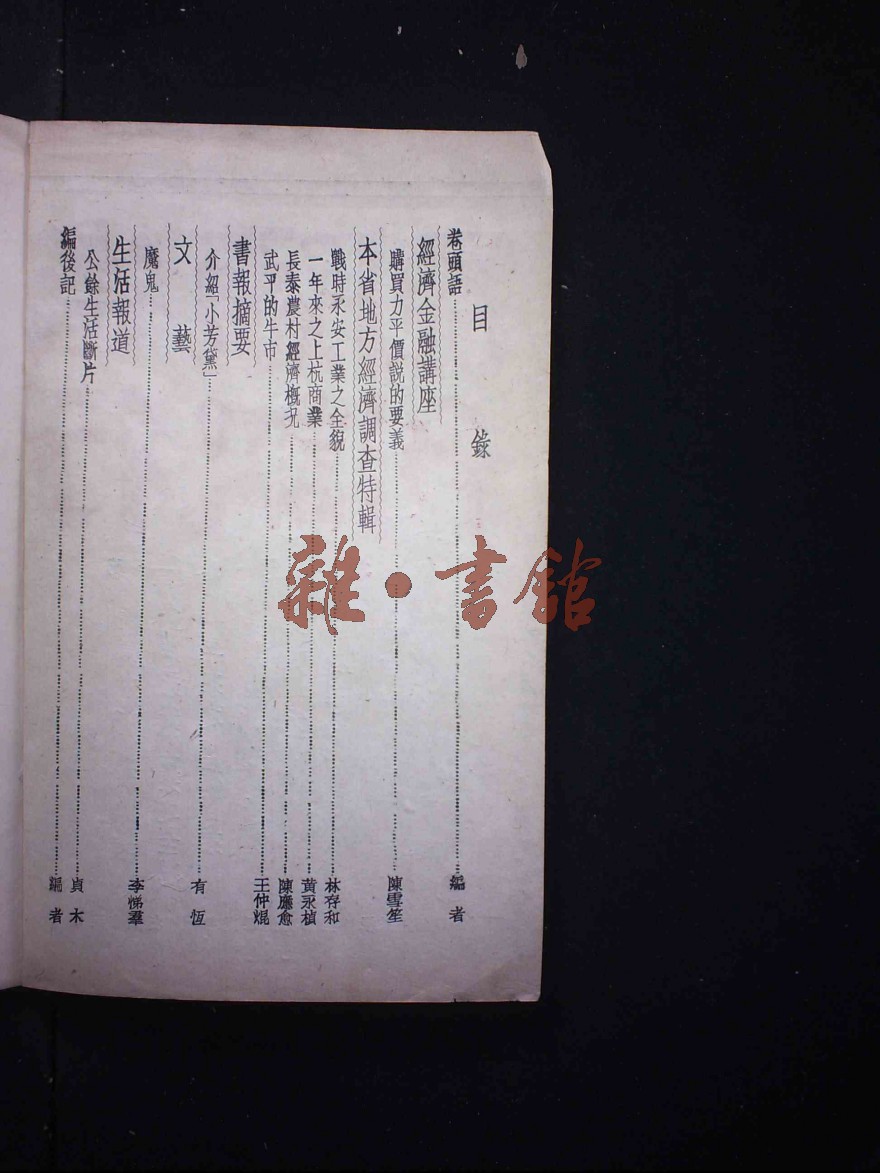 目錄
卷頭語……編者
經濟金融講座
購買力平價説的要義……陳雪笙
本省地方經濟調查特輯
戰時永安工業之全貌……林存和
一年來之上杭商業……黃永楨
長泰農村經濟概況……陳應愈
武平的牛市……王仲焜
書報摘要
介紹「小芳黛」……有恆
文藝
魔鬼……李悌羣
生活報道
公餘生活斷片……貞木
編後記……編者
雜·書館